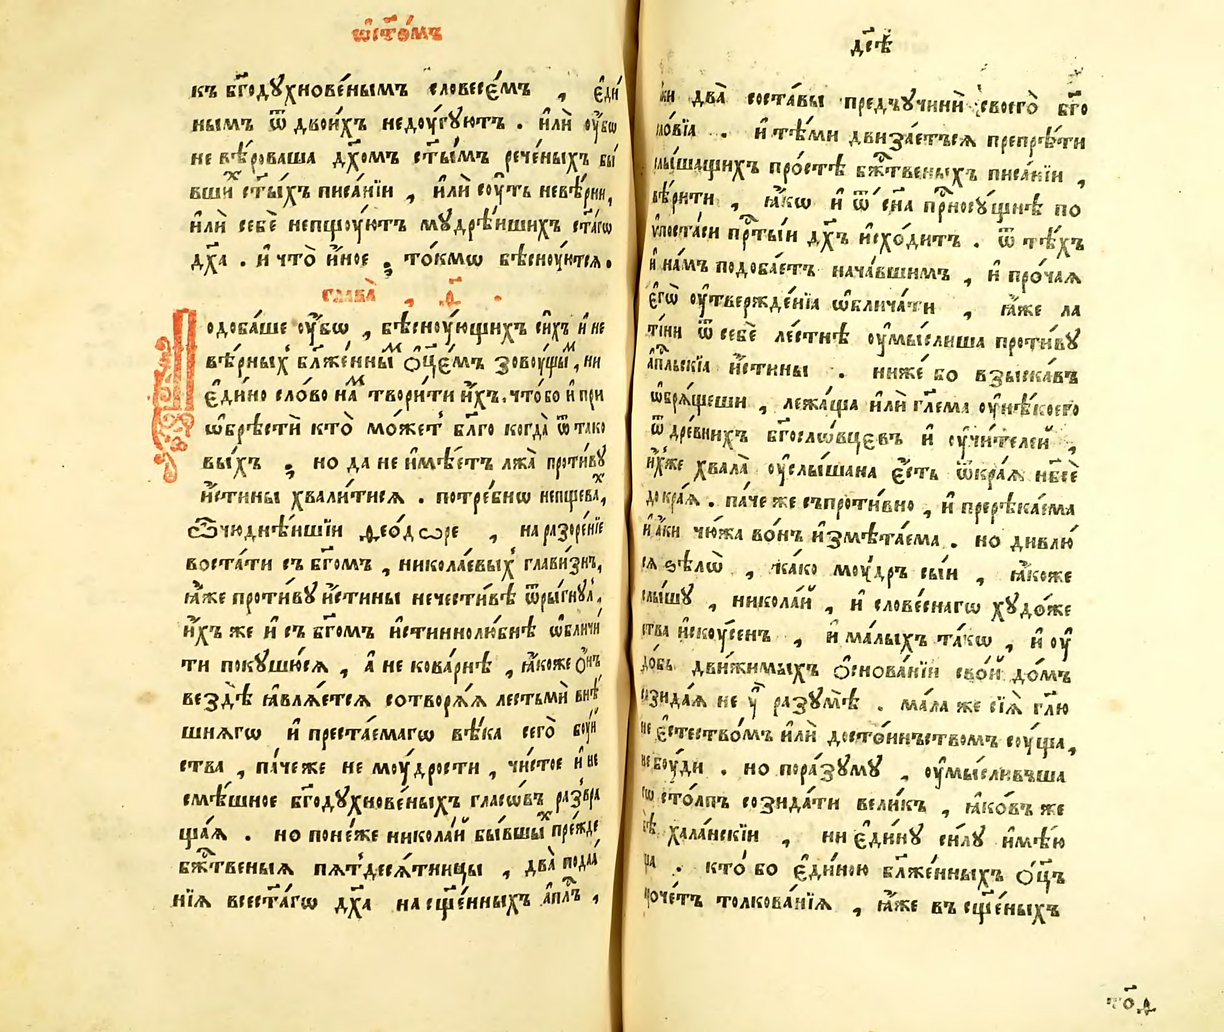 ѡ҆ст҃ѡ́мъ
къ бг҃одꙋхнове́нымъ словесє́мъ , є҆ди́
нымъ ѿ двои́хъ недоу́гуютъ . и҆лѝ оу҆́бѡ
не вѣ́роваша дх҃омъ ст҃ы́мъ рече́ныхъ бы́
вшиⷯ ст҃ы́хъ писа́нїи , и҆лѝ соу́ть невѣ́рни,
и҆лѝ себѐ непщоу́ютъ мꙋдрѣ́ишихъ ст҃а́гѡ
дх҃а . и҆ что̀ и҆́ное ; то́кмѡ бѣсноу́ются.
глава̀ , д҃ .
Подоба́ше оу҆́бѡ , бѣсноу́ющихъ си́хъ и҆ не
вѣ́рныхъ бл҃же́ннымⷨ ѻ҆ц҃є́мъ зовоу́щыⷨ , ни
є҆ди́но сло́во наⷨ твори́ти и҆́хъ. что́ бо и҆ при
ѡ҆брѣ́сти кто̀ мо́жетъ бл҃го когда̀ ѿ тако
вы́хъ ; но да не и҆мѣ́етъ лжа̀ проти́вꙋ
и҆́стины хвали́тися . потре́бнѡ непщева́ⷯ,
ѽ чюднѣ́ишїи ѳео́дѡре , на разоре́нїе
воста́ти съ бг҃омъ , никола́евыхъ глави́знъ,
ꙗ҆́же проти́вꙋ и҆́стины нечести́вѣ ѿры́гнулъ,
и҆́хъ же и҆ съ бг҃омъ и҆стиннолю́бнѣ ѡ҆бличи́
ти покꙋшю́ся , а҆ не кова́рнѣ , ꙗ҆́коже ѻ҆́нъ
вездѣ̀ ꙗ҆вля́ется сотворя́я лестьмѝ внѣ́
шнягѡ и҆ преста́емагѡ вѣ́ка сегѡ̀ боу́и
ства , па́че же не моу́дрости , чи́стое и҆ не
смѣ́шное бг҃одꙋхнове́ныхъ гласѡ́въ развра
ща́я . но поне́же никола́й бы́вшыⷯ пре́жде
бж҃твеныя пятдеся́тницы , два̀ подаа́
нїя всест҃а́гѡ дх҃а на сщ҃е́нныхъ а҆пл҃ъ ,
дс҃ѣ
ки два̀ соста́вы предъꙋчинѝ своегѡ̀ бг҃о
сло́вїа . и҆ тѣ́ми дви́зается препрѣ́ти
слы́шащихъ про́стѣ бж҃твеныхъ писа́нїи ,
вѣ́рити , ꙗ҆́кѡ и҆ ѿ сн҃а прⷭ҇носꙋщнѣ по
ѵ҆поста́си прⷭ҇ты́и дх҃ъ и҆схо́дитъ . ѿ тѣ́хъ
и҆ на́мъ подоба́етъ нача́вшимъ , и҆ про́чая
є҆гѡ̀ оу҆твержде́нїа ѡ҆блича́ти , ꙗ҆́же ла
ти́ни ѿ себѐ ле́стнѣ оу҆мы́слиша проти́вꙋ
а҆пл҃ьскїа и҆́стины . ниже́ бо взыска́въ
ѡ҆бря́щеши , лежа́ща и҆лѝ гл҃ема оу҆ нѣ́коего
ѿ дре́внихъ бг҃осло́вцєвъ и҆ оу҆чи́телей ,
и҆́хже хвала̀ оу҆слы́шана є҆́сть ѿ кра́я нб҃сѐ
до кра́я . па́че же съпроти́вно , и҆ прерѣка́ема
и҆ а҆́ки чю́жа во́нъ и҆змѣта́ема . но дивлю́
ся ѕѣлѡ̀ , ка́ко моу́дръ сы́и , ꙗ҆́коже
слы́шу , никола́й , и҆ слове́снагѡ хꙋдо́же
ства и҆скоу́сенъ , и҆ ма́лыхъ та́кѡ , и҆ оу҆
до́бь дви́жимыхъ ѻ҆снова́нїи свой до́мъ
сози́дая не оу҆ разꙋмѣ̀ . ма́ла же сїѧ̀ гл҃ю
не є҆стество́мъ и҆лѝ досто́инъствомъ соу́ща,
не боу́ди . но по ра́зꙋмꙋ , оу҆мы́сливъша
сѡ сто́лпъ созида́ти вели́къ , ꙗ҆ко́въ же
бѣ̀ хала́нскїи , ни є҆ди́нꙋ си́лꙋ и҆мѣ́ю
ща . кто́ бо є҆ди́ною бл҃же́нныхъ ѻ҆ц҃ъ
почо́етъ толкова́нїя , ꙗ҆́же въ сщ҃е́ныхъ
то́д